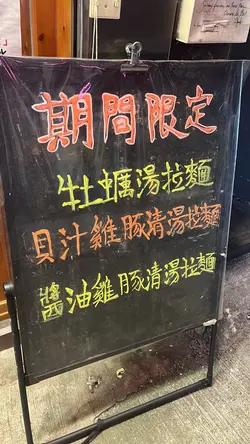 期間限定
牡蠣湯拉麵
貝汁雞豚清湯拉麵
醬油雞豚清湯拉麵